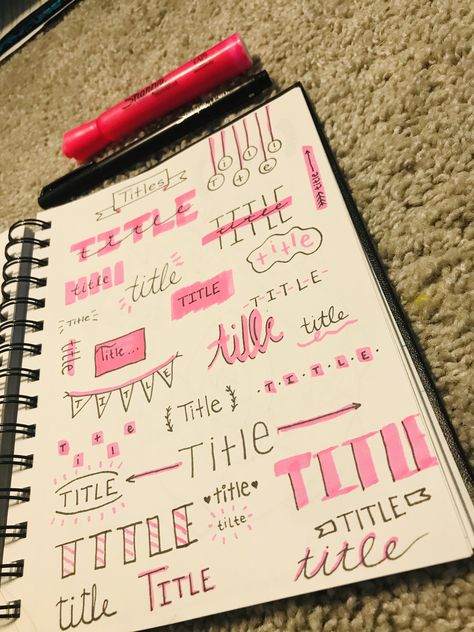 Sharpie
Titles
Title
TITLE
title
TITLE
title
title
title
title
title
TITLE
T-I-T-L-E
Title
title
Title...
title
title
TITLE
Title
T·I·T·L·E
Title
Title
TITLE
TITLE
title
tilte
TITLE
TITLE
title
title
TITLE